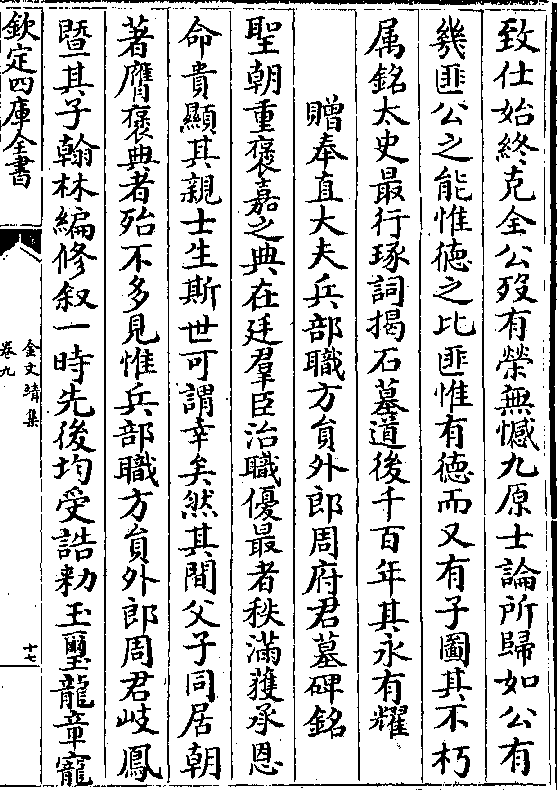 致仕始終克全公殁有榮無憾九原士論所歸如公有
幾匪公之能惟徳之比匪惟有徳而又有子圖其不朽
属銘太史最行琢詞揭石墓道後千百年其永有耀
贈奉直大夫兵部職方員外郎周府君墓碑銘
聖朝重褒嘉之典在廷羣臣治職優最者秩滿獲承恩
命貴顯其親士生斯世可謂幸矣然其間父子同居朝
著膺褒典者殆不多見惟兵部職方員外郎周君岐鳳
暨其子翰林編修叙一時先後均受誥勅玉璽龍章寵
欽定四庫全書
金文靖集
卷九
十七